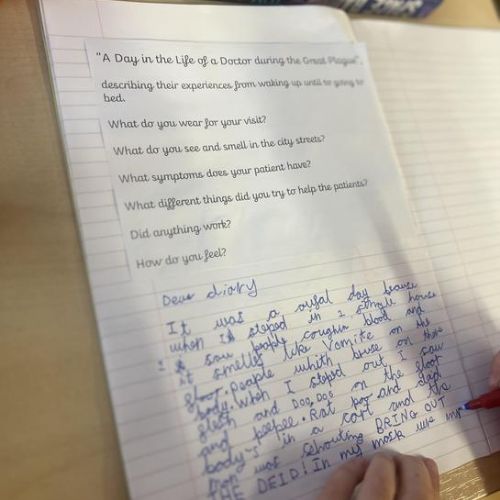 "A Day in the Life of a Doctor during the Great Plague",
describing their experiences from waking up until to going to
bed.
What do you wear for your visit?
What do you see and smell in the city streets?
What symptoms does your patient have?
What different things did you try to help the patients?
Did anything work?
How do you feel?
Dear diary
It was a awful day because
when I steped in 2 single house
I saw people coughin blood and
it smelles like Vomite on the
floor. People whith on there
body. When I step'd out I saw
and DOG, DOG on the floor
and peepee. Rat poo and ded
body's in a cart and the
man was shouting BRING OUT
THE DEID! In my mask was